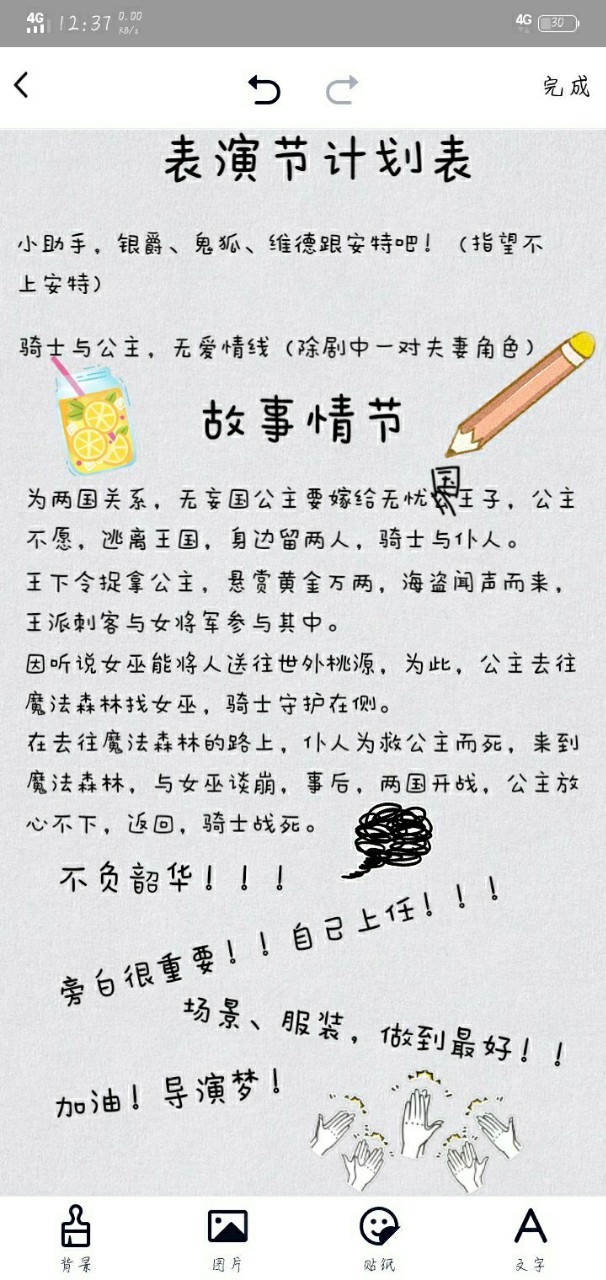 4G 12:37 0.00 KB/s 4G 30
完成
表演节计划表
小助手，银爵、鬼狐、维德跟安特吧！（指望不
上安特）
骑士与公主，无爱情线（除剧中一对夫妻角色）
故事情节
为两国关系，无妄国公主要嫁给无忧国王子，公主
不愿，逃离王国，身边留两人，骑士与仆人。
王下令捉拿公主，悬赏黄金万两，海盗闻声而来，
王派刺客与女将军参与其中。
因听说女巫能将人送往世外桃源，为此，公主去往
魔法森林找女巫，骑士守护在侧。
在去往魔法森林的路上，仆人为救公主而死，来到
魔法森林，与女巫谈崩，事后，两国开战，公主放
心不下，返回，骑士战死。
不负韶华！！！
旁白很重要！！自己上任！！！
场景、服装，做到最好！！
加油！导演梦！
背景 图片 贴纸 文字